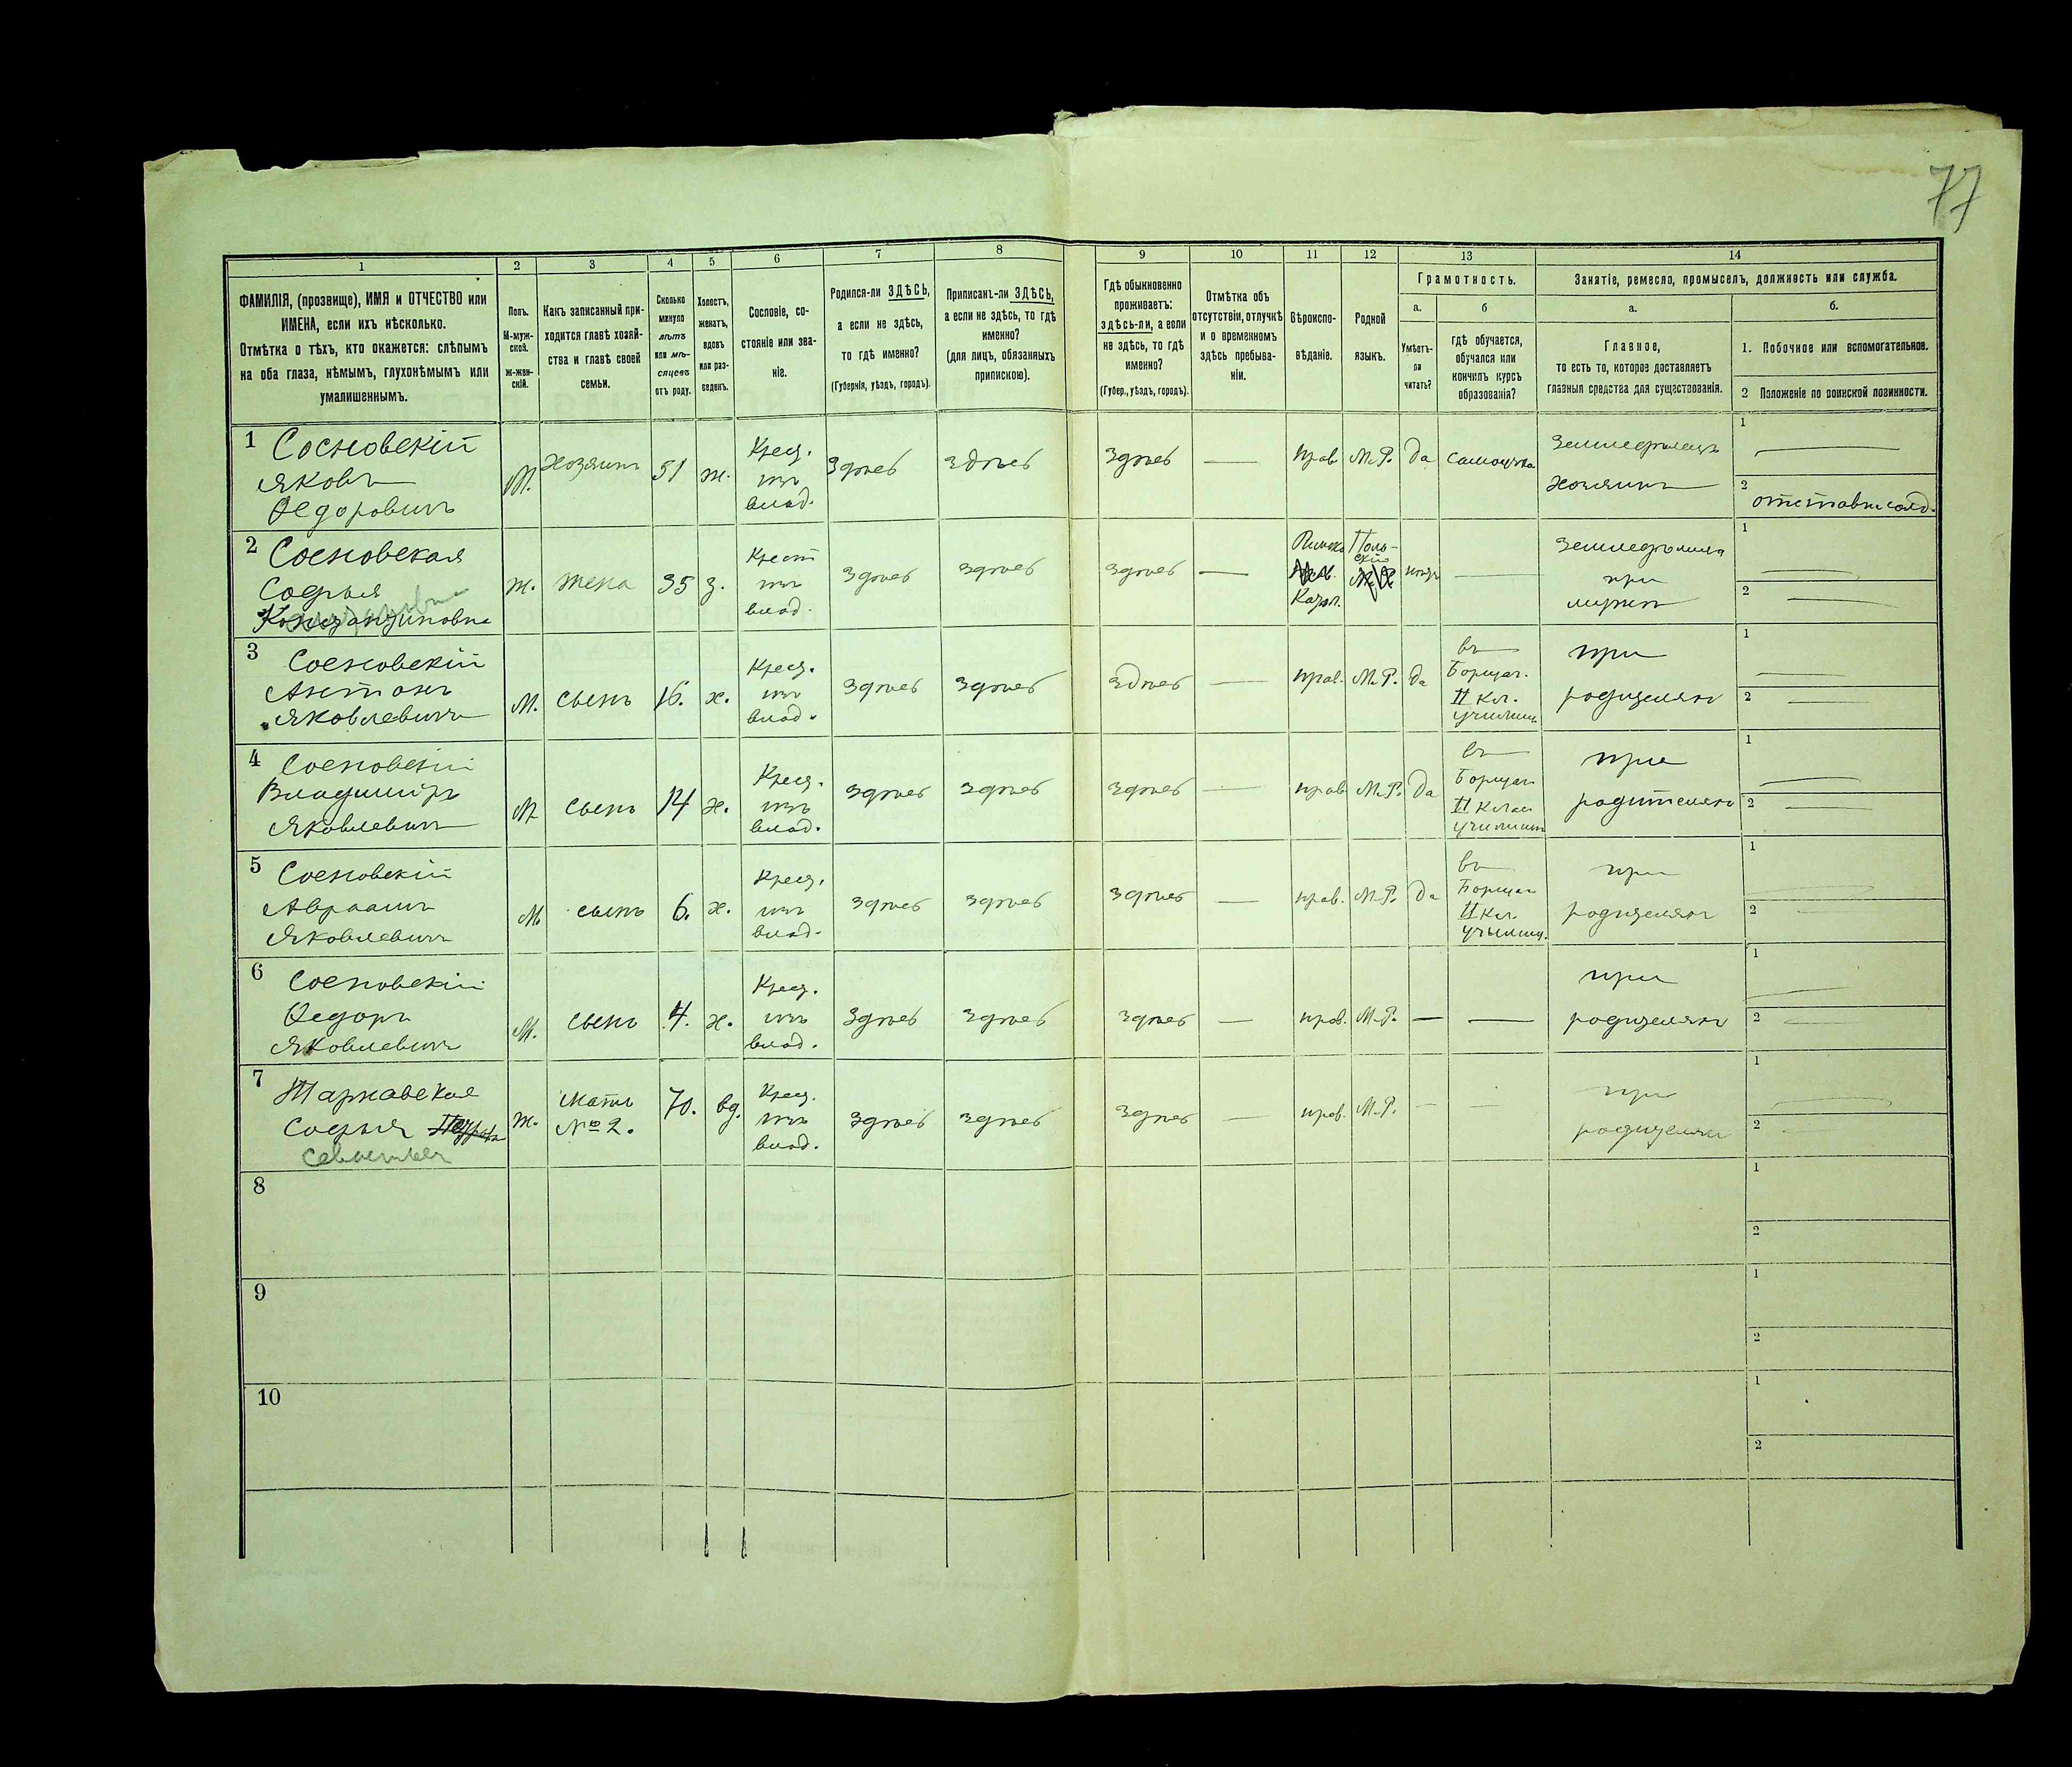 77
1 2 3 4 5 6 7 8 9 10 11 12 13 14
ФАМИЛІЯ, (прозвище), ИМЯ и ОТЧЕСТВО или
ИМЕНА, если ихъ нѣсколько.
Отмѣтка о тѣхъ, кто окажется: слѣпымъ
на оба глаза, нѣмымъ, глухонѣмымъ или
умалишеннымъ.
Полъ.
М-муж-
ской.
Ж-жен-
скій.
Какъ записанный при-
ходится главѣ хозяй-
ства и главѣ своей
семьи.
Сколько
минуло
лѣтъ
или мѣ-
сяцевъ
отъ роду.
Холостъ,
женатъ,
вдовъ
или раз-
веденъ.
Сословіе, со-
стояніе или зва-
ніе.
Родился-ли ЗДѢСЬ,
а если не здѣсь,
то гдѣ именно?
(Губернія, уѣздъ, городъ).
Приписанъ-ли ЗДѢСЬ,
а если не здѣсь, то гдѣ
именно?
(для лицъ, обязанныхъ
припискою).
Гдѣ обыкновенно
проживаетъ:
здѣсь-ли, а если
не здѣсь, то гдѣ
именно?
(Губер., уѣздъ, городъ).
Отмѣтка объ
отсутствіи, отлучкѣ
и о временномъ
здѣсь пребыва-
ніи.
Вѣроиспо-
вѣданіе.
Родной
языкъ.
Грамотность.
а.
Умѣетъ-
ли
читать?
б
гдѣ обучается,
обучался или
кончилъ курсъ
образованія?
Занятіе, ремесло, промыселъ, должность или служба.
а.
Главное,
то есть то, которое доставляетъ
главныя средства для существованія.
б.
1. Побочное или вспомогательное.
2 Положеніе по воинской повинности.
1 Сосновскій
Яковъ
Ѳедоровичъ
М.
Хозяинъ
51
ж.
Крест.
изъ
влад.
Здѣсь
здѣсь
здѣсь
—
прав.
М.Р.
да
самоучка
Земледѣлецъ
хозяинъ
1 —
2 отставн. солд.
2 Сосновская
Софья
Константиновна
ж.
жена
35
з.
Крест
изъ
влад.
здѣсь
здѣсь
здѣсь
—
Римско
Катол.
Поль-
скій
М.Р.
нѣтъ
—
Земледѣлица
при
мужѣ
1 —
2 —
3 Сосновскій
Антонъ
Яковлевичъ
М.
сынъ
16.
х.
Крест.
изъ
влад.
здѣсь
здѣсь
здѣсь
—
прав.
М.Р.
да
въ
Борщаг.
II Кл.
училищ.
при
родителяхъ
1 —
2 —
4 Сосновскій
Владиміръ
Яковлевичъ
М
сынъ
14
х.
Крест.
изъ
влад.
здѣсь
здѣсь
здѣсь
—
прав
М.Р.
да
въ
Борщаг
II Клас
училищ
при
родителяхъ
1 —
2 —
5 Сосновскій
Авраамъ
Яковлевичъ
М
сынъ
6.
х.
Крест.
изъ
влад.
здѣсь
здѣсь
здѣсь
—
прав.
М.Р.
да
въ
Борщаг
II Кл.
училищ.
при
родителяхъ
1 —
2 —
6 Сосновскій
Ѳедоръ
Яковлевичъ
М.
сынъ
4.
х.
Крест.
изъ
влад.
здѣсь
здѣсь
здѣсь
—
прав.
М.Р.
—
—
при
родителяхъ
1 —
2 —
7 Тарнавская
Софья Петровна
ж.
мать
№ 2.
70.
вд.
Крест.
изъ
влад.
здѣсь
здѣсь
здѣсь
—
прав.
М.Р.
—
—
при
родителяхъ
1 —
2 —
8
1
2
9
1
2
10
1
2